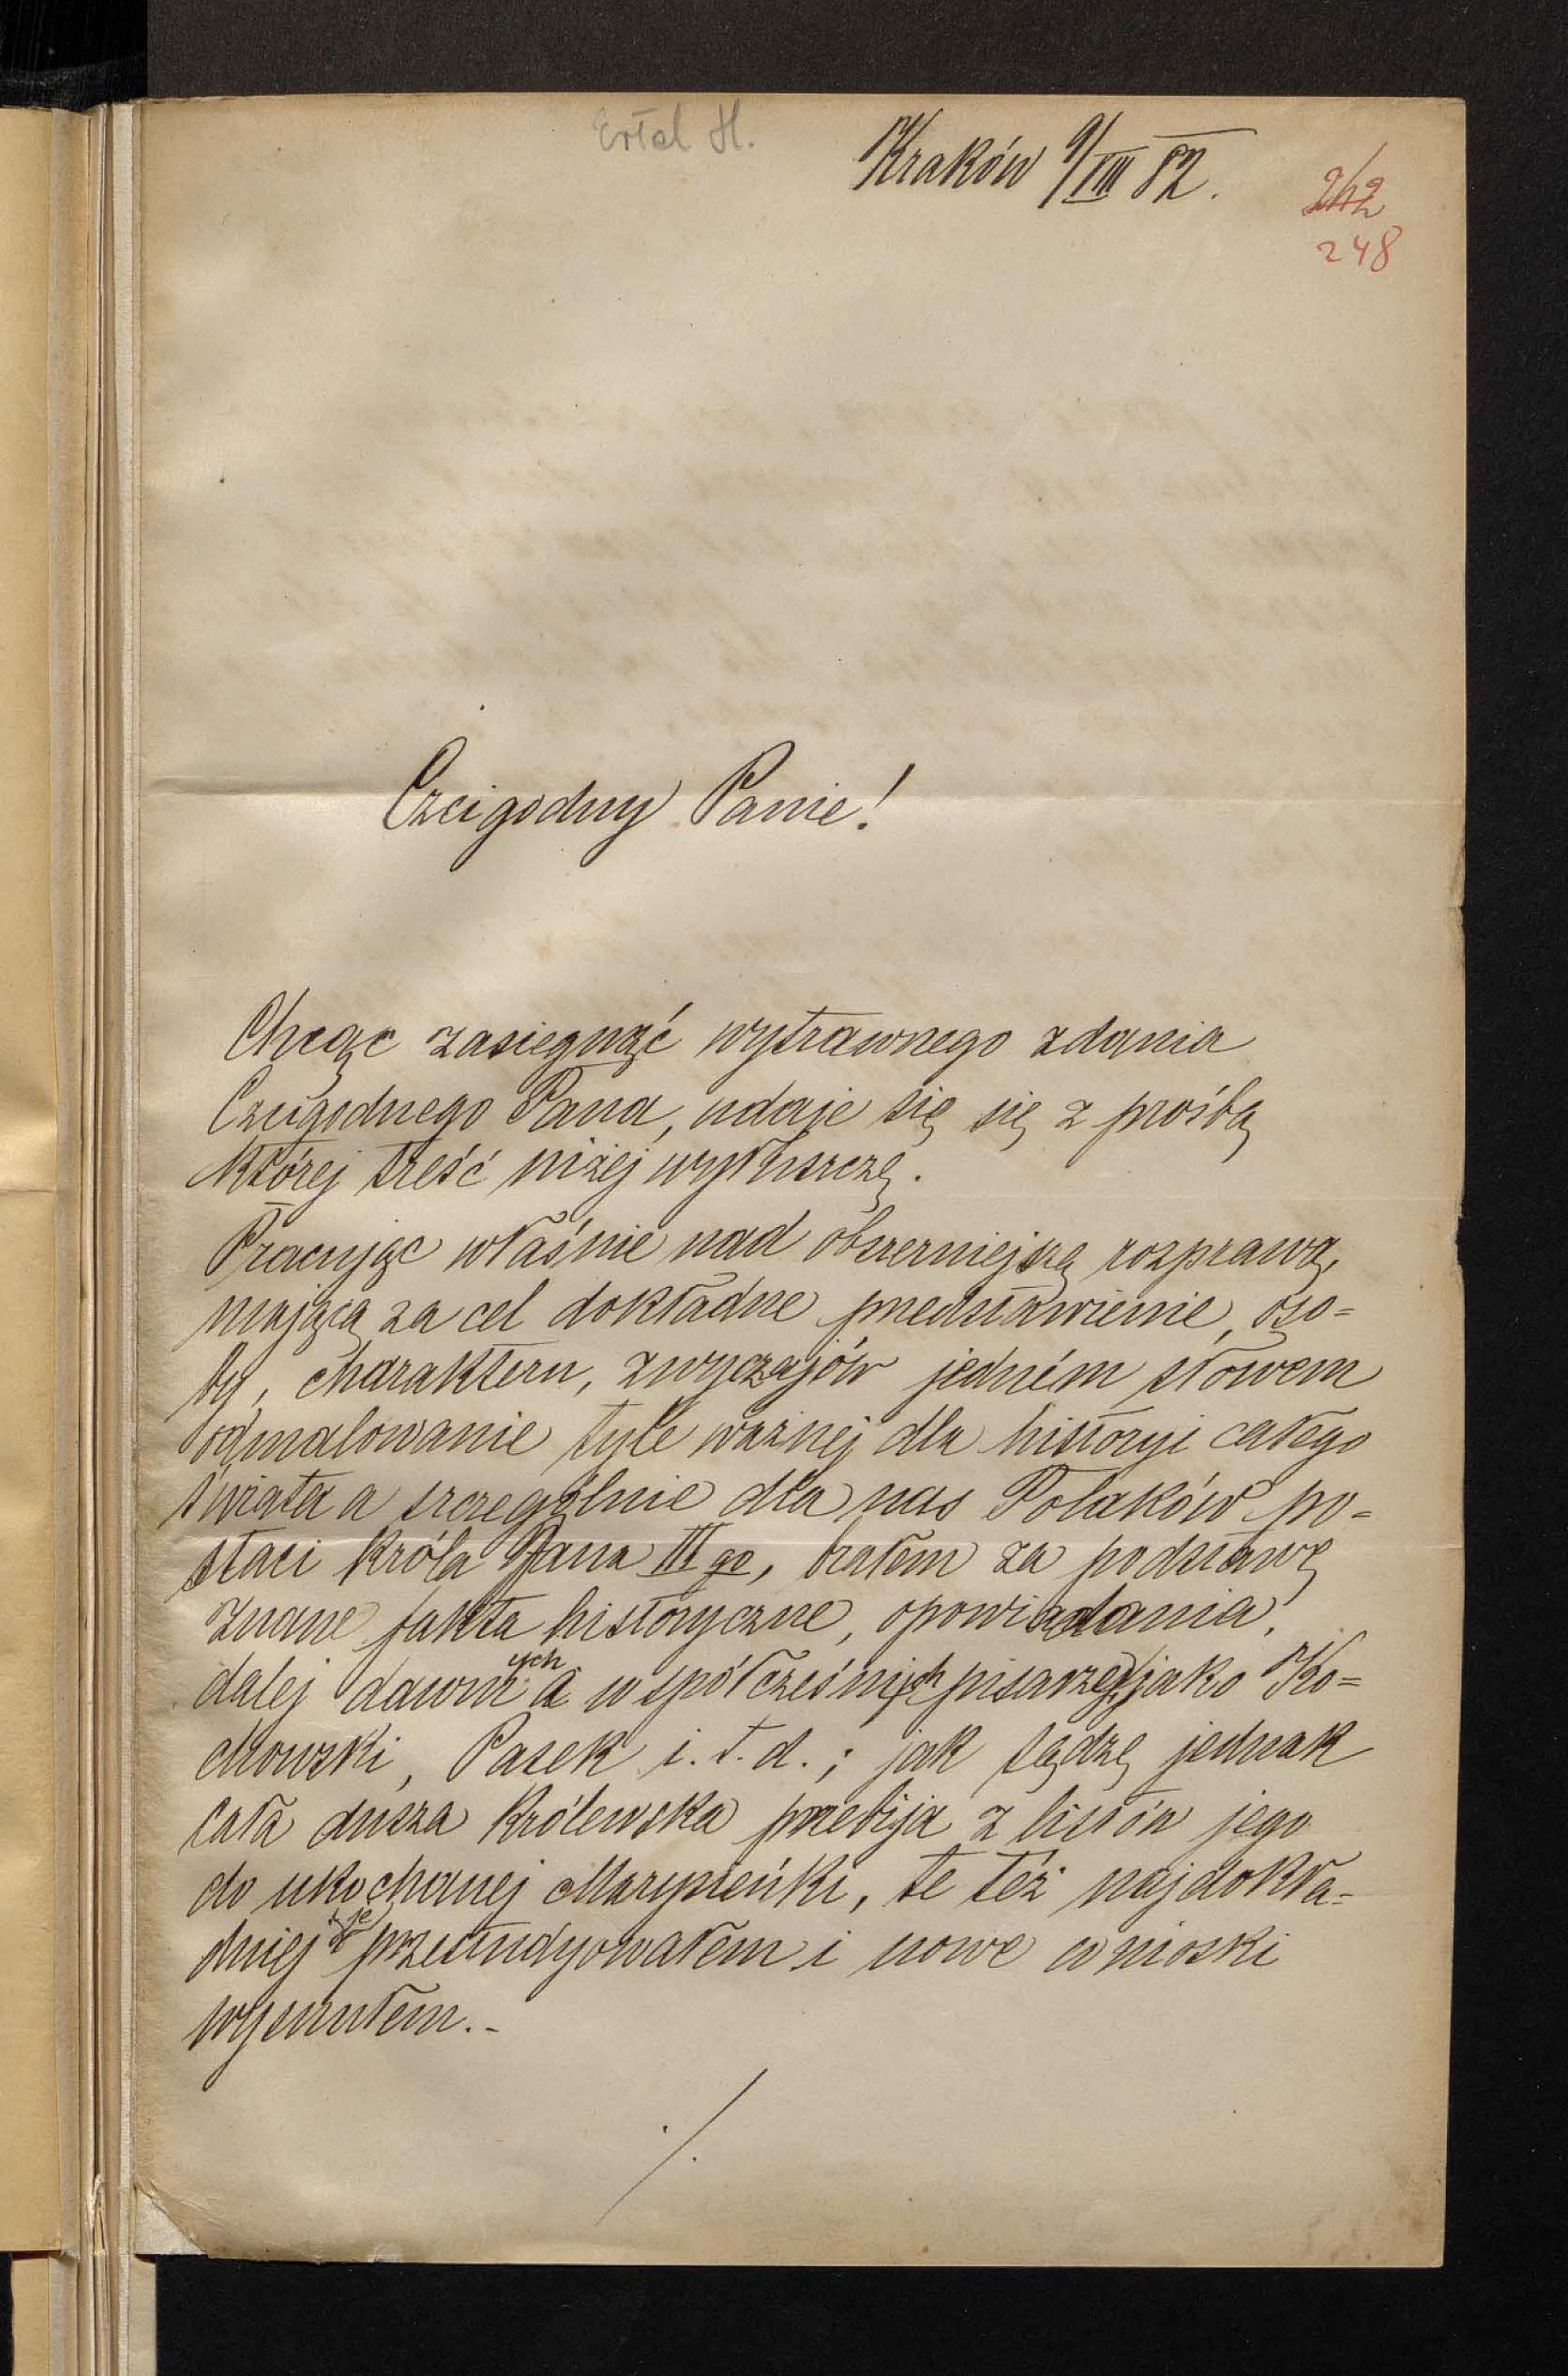 Ertel H.
Kraków 9/VIII 82.
242
248
Czcigodny Panie!
Chcąc zasiegnąć wytrawnego zdania
Czcigodnego Pana, udaje się się z prośbą
której treść niżej wyłuszczę.
Pracując właśnie nad obszerniejszą rozprawą,
mającą za cel dokładne przedstawienie, oso=
by, charakteru, zwyczajów jedném słowem
odmalowanie tyle ważnej dla historyi całego
świata a szczególnie dla nas Polaków po=
staci króla Jana III go, brałem za podstawę
znane fakta historyczne, opowiadania,
dalej dawnych a współcześnych pisarzy, jako Ko=
chowski, Pasek i. t. d.; jak sądzę jednak
cała dusza Królewska przebija z listów jego
do ukochanej Marysieńki, te téż najdokła=
dniej je przestudyowałem i nowe wnioski
wysnułem.-
./.